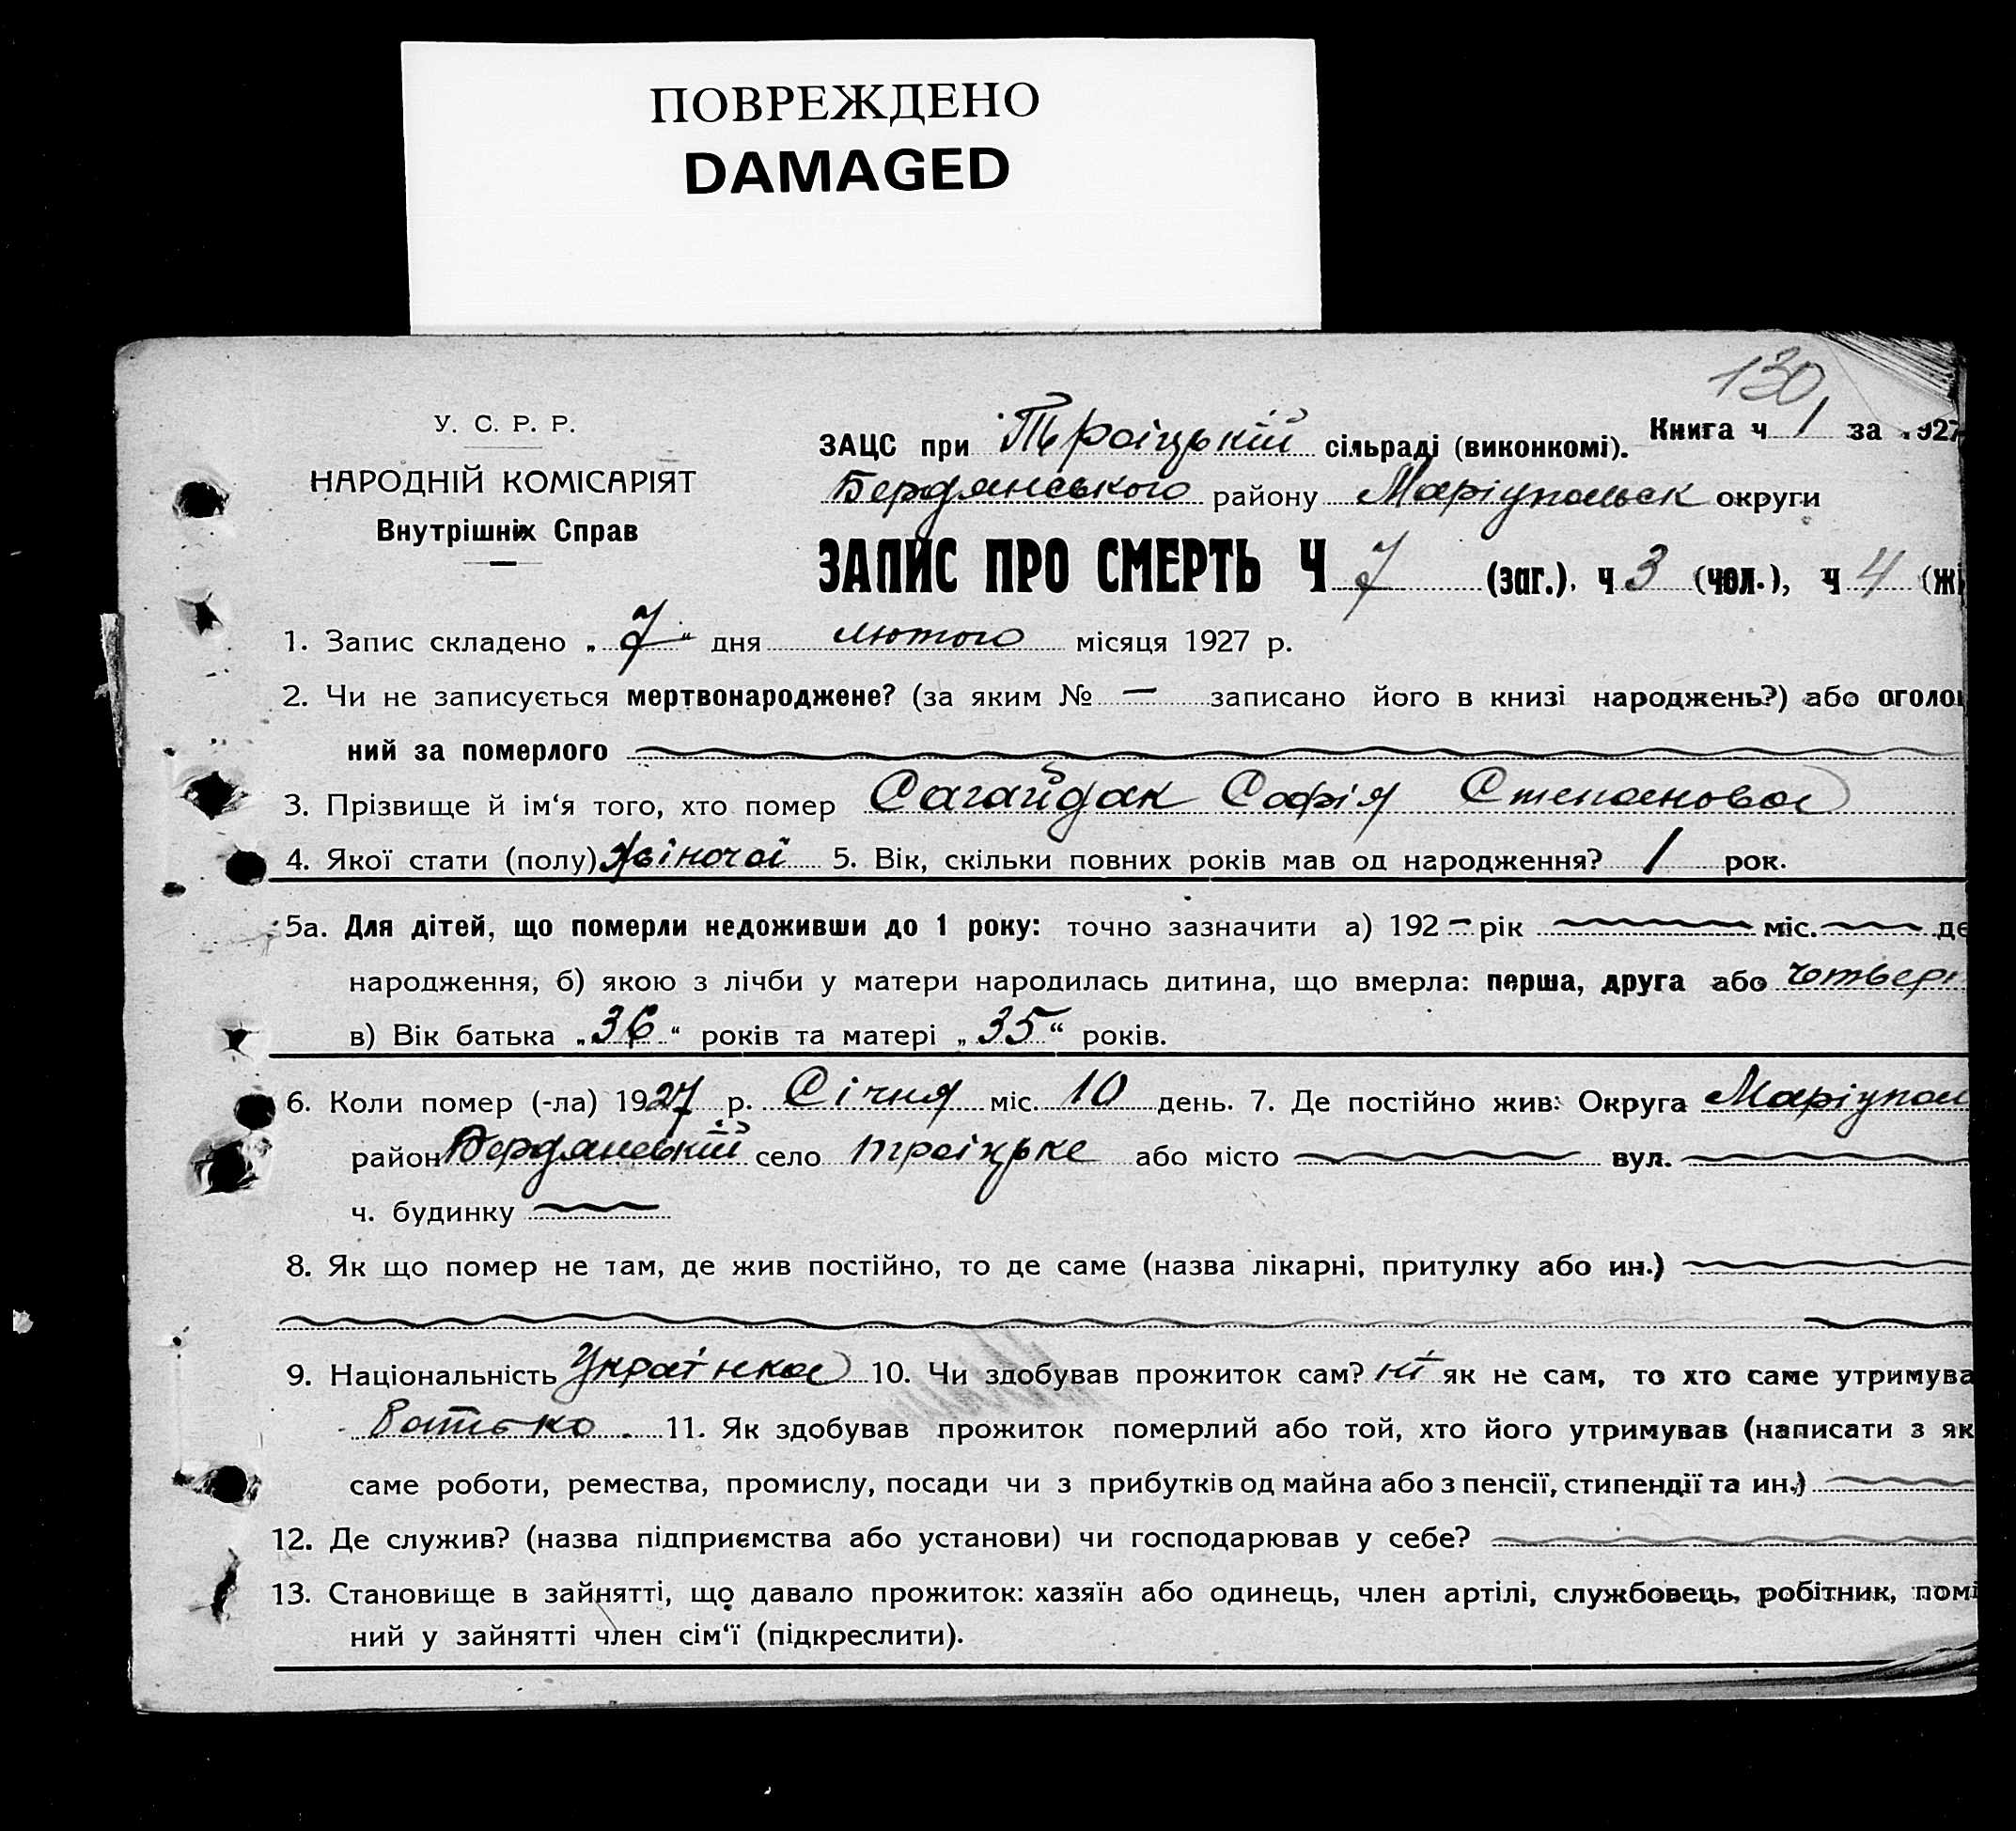 ПОВРЕЖДЕНО
DAMAGED
130
У. С. Р. Р.
НАРОДНІЙ КОМІСАРІЯТ
Внутрішніх Справ
ЗАЦС при Троіцькій сільраді (виконкомі). Книга ч 1 за 1927
Бердянського району Маріупольськ округи
ЗАПИС ПРО СМЕРТЬ Ч 7 (заг.), ч 3 (чол.), ч 4 (жі
1. Запис складено „7“ дня лютого місяця 1927 р.
2. Чи не записується мертвонароджене? (за яким № — записано його в книзі народжень?) або оголо
ний за померлого
3. Прізвище й ім‘я того, хто помер Сагайдак Софія Степановна
4. Якої стати (полу) жіночої 5. Вік, скільки повних років мав од народження? 1 рок.
5а. Для дітей, що померли недоживши до 1 року: точно зазначити а) 192 – рік міс. де
народження, б) якою з лічби у матери народилась дитина, що вмерла: перша, друга або
в) Вік батька „36“ років та матері „35“ років.
6. Коли помер (-ла) 1927 р. Січня міс. 10 день. 7. Де постійно жив: Округа Маріупол
район Бердянський село Троіцьке або місто вул.
ч. будинку
8. Як що помер не там, де жив постійно, то де саме (назва лікарні, притулку або ин.)
9. Національність Українка 10. Чи здобував прожиток сам? ні як не сам, то хто саме утримува
Батько 11. Як здобував прожиток померлий або той, хто його утримував (написати з як
саме роботи, ремества, промислу, посади чи з прибутків од майна або з пенсії, стипендії та ин.)
12. Де служив? (назва підприємства або установи) чи господарював у себе?
13. Становище в зайнятті, що давало прожиток: хазяїн або одинець, член артілі, службовець, робітник, помі
ний у зайнятті член сім‘ї (підкреслити).